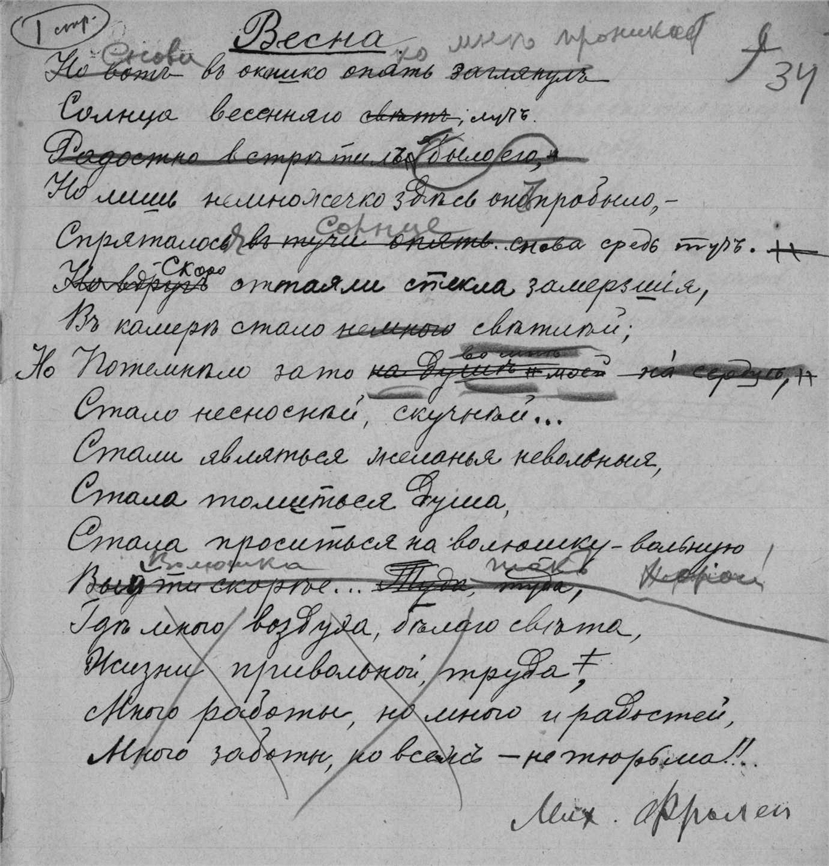 1 стр.
Весна
34
Снова ко мнѣ проникаетъ
Но вотъ въ окошко опять заглянулъ
Солнца весенняго свѣтъ, лучъ.
Радостно встрѣтилъ было его,
Но лишь немножечко здѣсь оно пробыло,–
Солнце
Спряталось въ тучи опять. снова средь тучъ.
Скоро
Но вдругъ оттаяли стекла замерзшія,
Въ камерѣ стало немного свѣтлѣй;
Но Потемнѣло зато на душѣ моей на сердцѣ,
Стало несноснѣй, скучнѣй...
Стали являться желанья невольныя,
Стала томиться душа,
Стала проситься на волюшку-вольную
Волюшка такъ
Выдти скорѣе... Туда, туда,
Гдѣ много воздуха, бѣлаго свѣта,
Жизни привольной, труда,
Много работы, но много и радостей,
Много заботы, но всежъ – не тюрьма!!..
Мих.